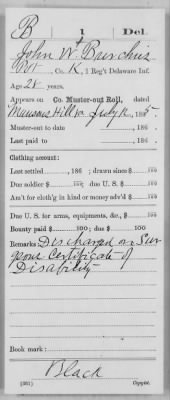 B | 1 | Del.
John W. Burchins
Pvt., Co. K, 1 Reg't Delaware Inf.
Age 28 years.
Appears on Co. Muster-out Roll, dated
Munsons Hill Va July 12, 1865.
Muster-out to date , 186 .
Last paid to , 186 .
Clothing account:
Last settled , 186 ; drawn since $ 100
Due soldier $ 100; due U. S. $ 100
Am't for cloth'g in kind or money adv'd $ 100
Due U. S. for arms, equipments, &c., $ 100
Bounty paid $ 100; due $ 100
Remarks: Discharged on Sur
geons Certificate of
Disability
Book mark:
Black
(361) Copyist.